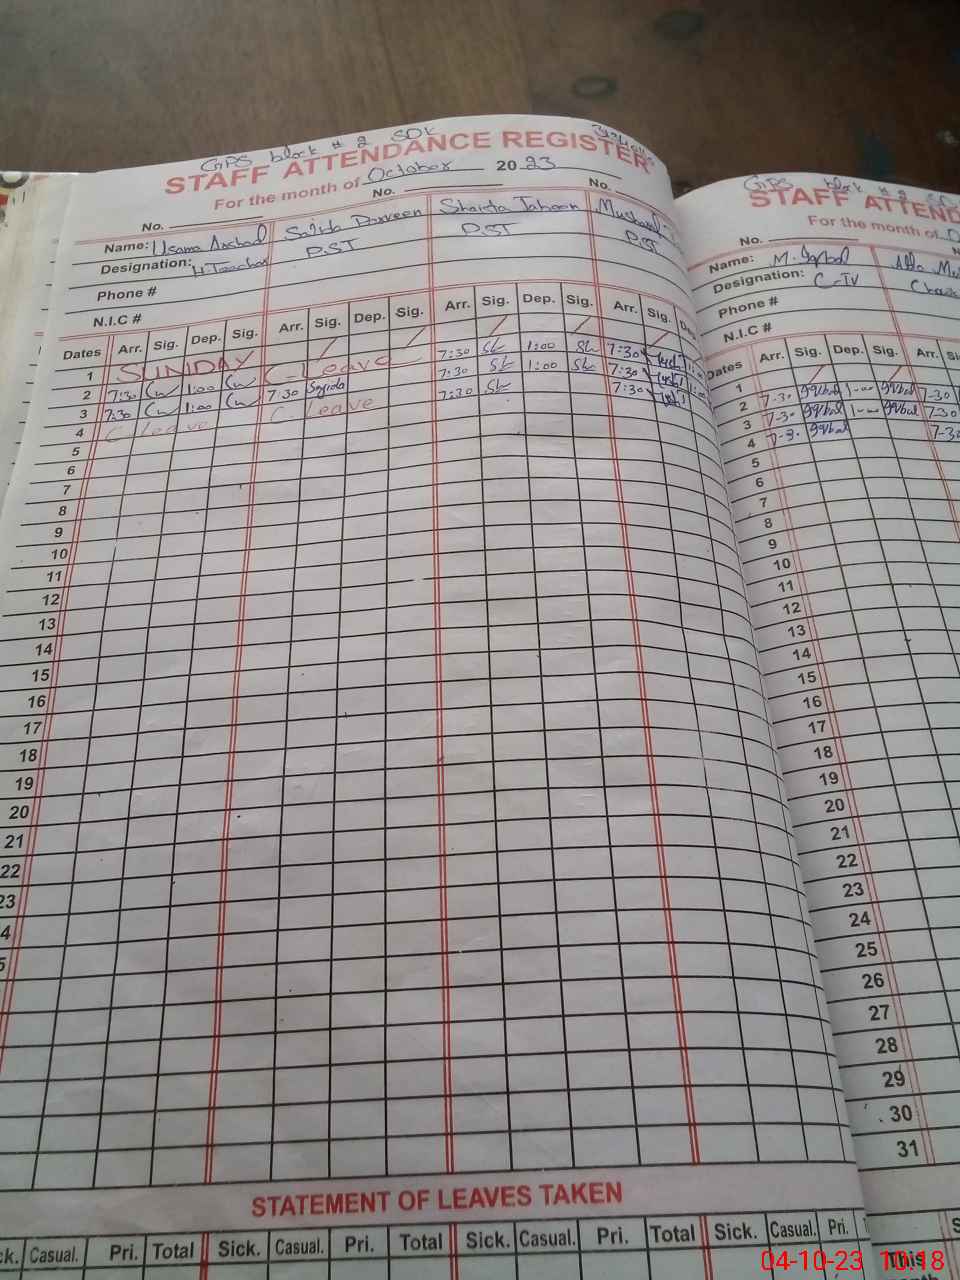 GPS block # 2 SDK
STAFF ATTENDANCE REGISTER
For the month of October 2023
No. No. No.
Name: Usama Arshad Sajida Parveen Shaista Jabeen
Designation: H Teacher PST PST PST
Phone #
N.I.C #
Dates Arr. Sig. Dep. Sig. Arr. Sig. Dep. Sig. Arr. Sig. Dep. Sig. Arr. Sig.
1 SUNDAY
2 7:30 1:00 C-Leave 7:30 1:00 7:30
3 7:30 1:00 7:30 Sajida 7:30 1:00 7:30
4 C-Leave C-Leave 7:30 7:30
5
6
7
8
9
10
11
12
13
14
15
16
17
18
19
20
21
22
23
4
5
STATEMENT OF LEAVES TAKEN
Casual. Pri. Total Sick. Casual. Pri. Total Sick. Casual. Pri. Total Sick. Casual. Pri.
GPS block # 2
STAFF ATTEND
For the month of
No.
Name: M. Iqbal
Designation: C-IV
Phone #
N.I.C #
Dates Arr. Sig. Dep. Sig. Arr.
1
2 7-30 Iqbal 1-00 Iqbal 7-30
3 7-30 Iqbal 1-00 Iqbal 7-30
4 7-30 Iqbal 7-30
5
6
7
8
9
10
11
12
13
14
15
16
17
18
19
20
21
22
23
24
25
26
27
28
29
30
31
This
04-10-23 10:18